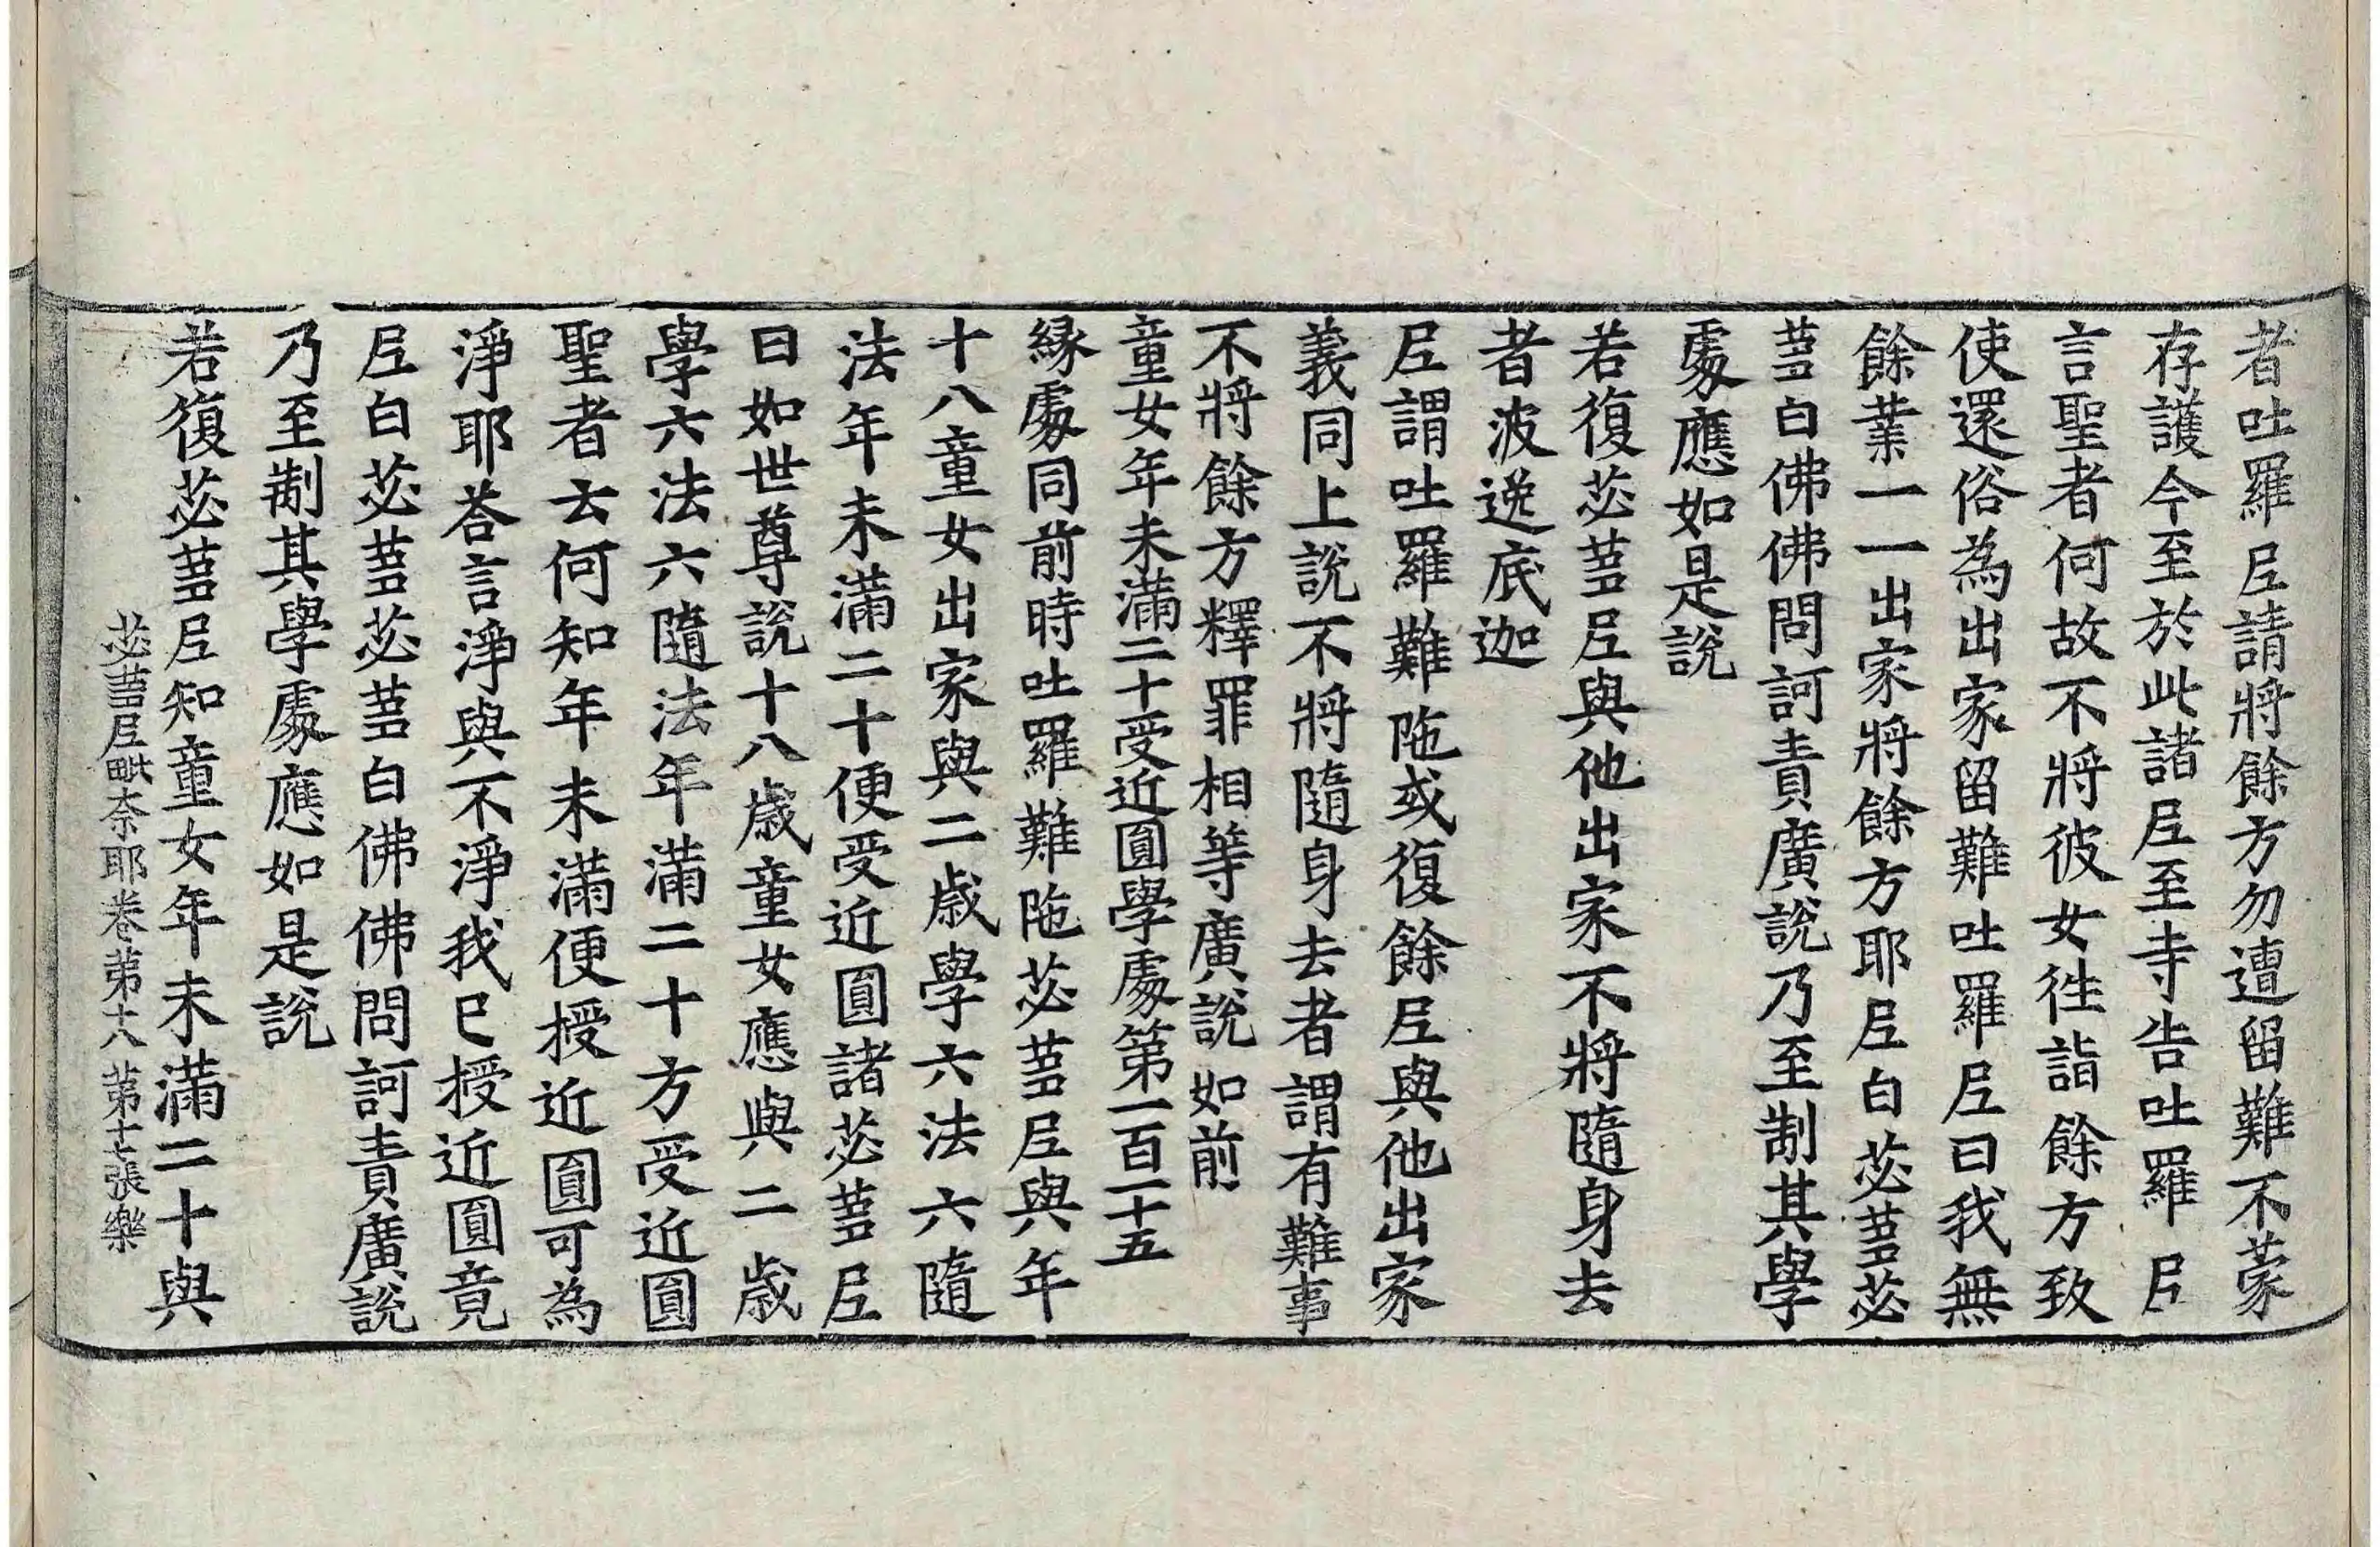 者吐羅尼請將餘方勿遭留難不蒙
存護今至於此諸尼至寺告吐羅尼
言聖者何故不將彼女往詣餘方致
使還俗為出家留難吐羅尼曰我無
餘業一一出家將餘方耶尼白苾蒭苾
蒭白佛佛問訶責廣說乃至制其學
處應如是說
若復苾蒭尼與他出家不將隨身去
者波逸底迦
尼謂吐羅難陁或復餘尼與他出家
義同上說不將隨身去者謂有難事
不將餘方釋罪相等廣說如前
童女年未滿二十受近圓學處第一百一十五
緣處同前時吐羅難陁苾蒭尼與年
十八童女出家與二歲學六法六隨
法年未滿二十便受近圓諸苾蒭尼
曰如世尊說十八歲童女應與二歲
學六法六隨法年滿二十方受近圓
聖者云何知年未滿便授近圓可為
淨耶荅言淨與不淨我已授近圓竟
尼白苾蒭苾蒭白佛佛問訶責廣說
乃至制其學處應如是說
若復苾蒭尼知童女年未滿二十與
苾蒭尼毗奈耶卷第十八 第十七張 樂